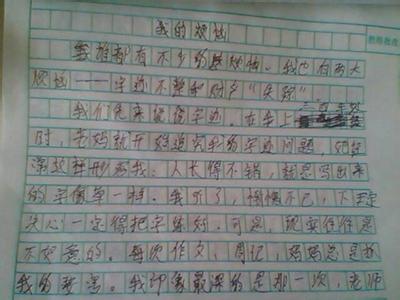 我的烦恼
谁都有不少的烦恼。我也有两大
烦恼——字迹不整和财字“失踪”
我们先来说说字迹。在早上
时，老妈就开始追究我的字迹问题，她经
常这样形容我：人长得不错，就是写出来
的字像草一样。我听了，惭愧不已，下定
决心一定得把字练好。可是，现实往往是
不如意的。每次作文，周记，妈妈总是
我的。我印象最深的是那一次，老师